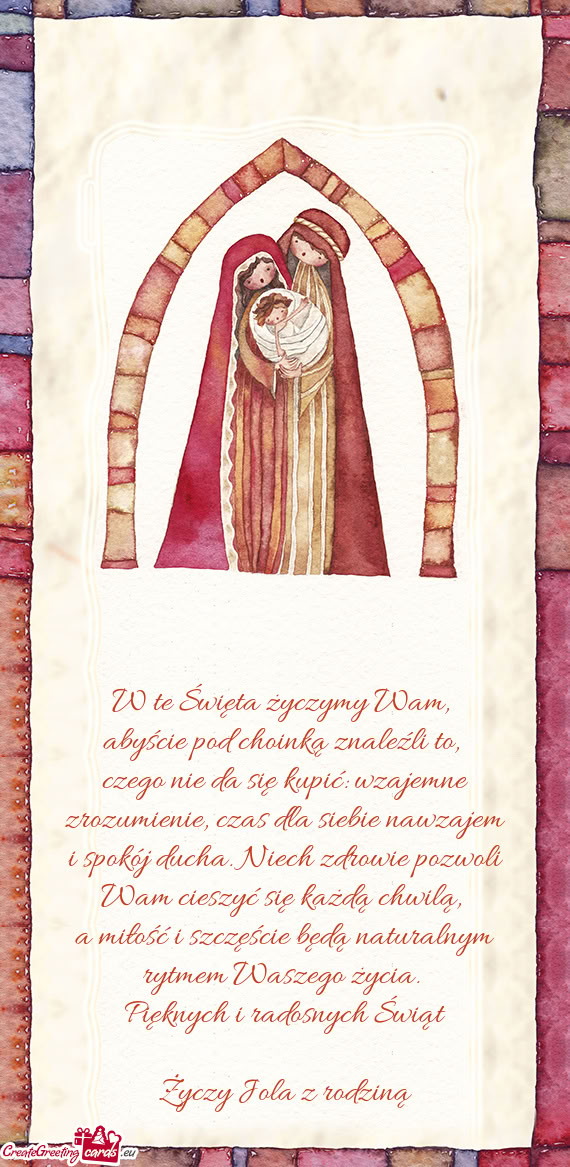 W te Święta życzymy Wam,
abyście pod choinką znaleźli to,
czego nie da się kupić: wzajemne
zrozumienie, czas dla siebie nawzajem
i spokój ducha. Niech zdrowie pozwoli
Wam cieszyć się każdą chwilą,
a miłość i szczęście będą naturalnym
rytmem Waszego życia.
Pięknych i radosnych Świąt
Życzy Jola z rodziną
CreateGreeting cards .eu